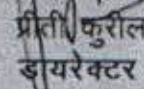 प्रीती कुरील
डायरेक्टर